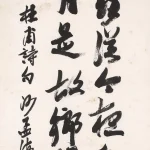 露從今夜白
月是故鄉明
杜甫詩句 沙孟海